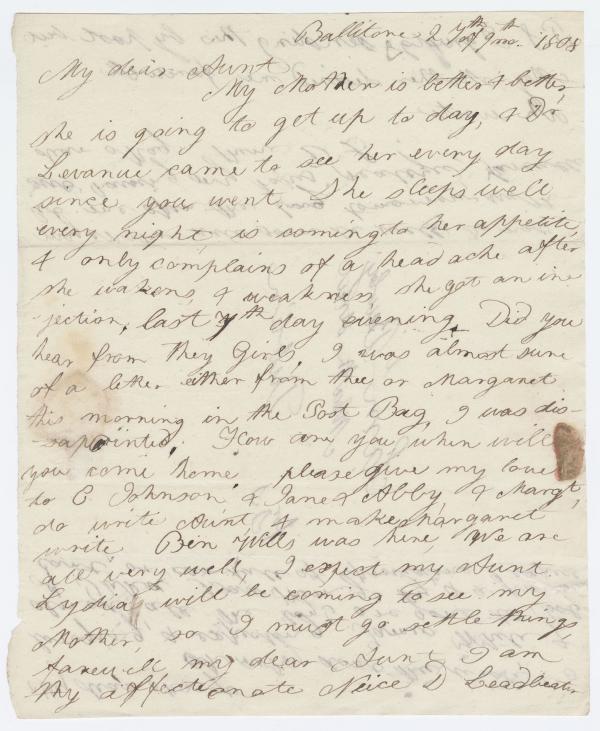 Ballitore 27th of 9th mo. 1808
My dear Aunt
My Mother is better & better,
she is going to get up to day, & Dr
Levanue came to see her every day
since you went She sleeps well
every night, is coming to her appetite,
& only complains of a headache after
she wakens, & weakness, she got an in
-jection, last 7th day evening. Did you
hear from they Girls, I was almost sure
of a letter either from thee or Margaret
this morning in the Post Bag, I was dis-
-sapointed. How are you when will
you come home please give my love
to E Johnson, & Jane & Abby, & Margt,
do write Aunt, & make Margaret
write. Ben Wills was here, We are
all very well I expect my Aunt
Lydia will be coming to see my
Mother, so I must go settle things,
farewell my dear Aunt I am
thy affectionate Neice D Leadbeater